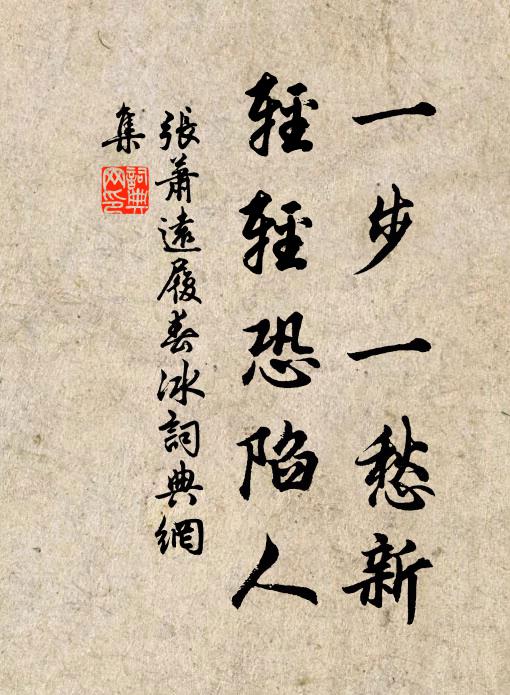 一步一愁新
輕輕恐陷人
張蕭遠履春冰詞典網
集
詞典
网印